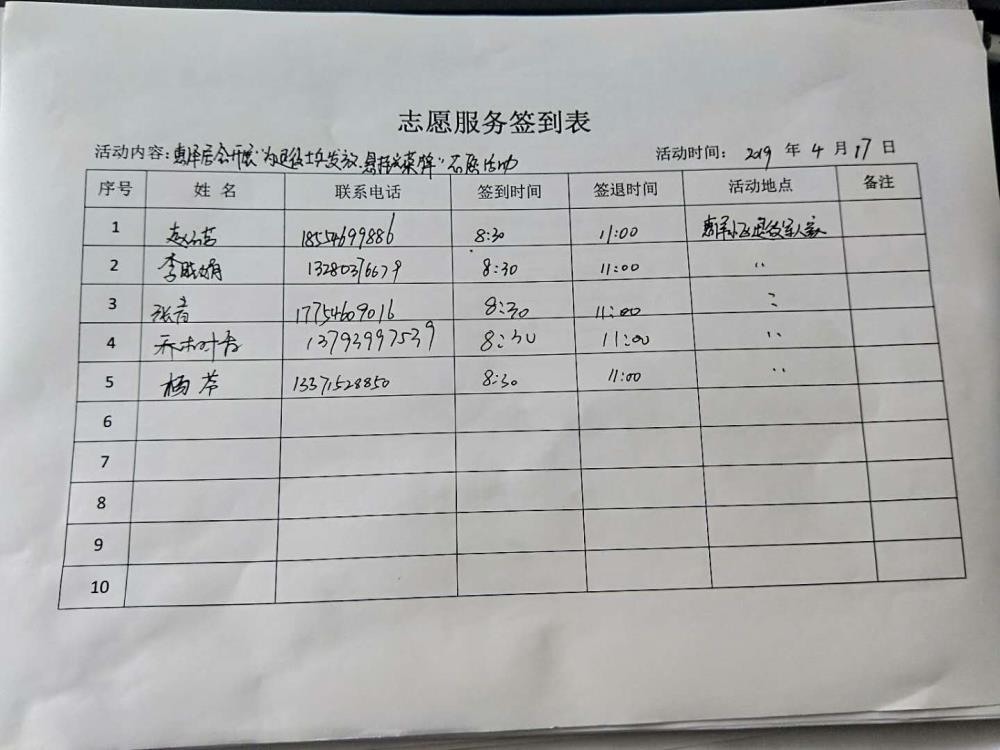 志愿服务签到表
活动内容: 惠泽居会开展"为退役士兵发放、悬挂光荣牌"志愿活动 活动时间: 2019 年 4 月 17 日
序号 姓 名 联系电话 签到时间 签退时间 活动地点 备注
1 18554699886 8:30 11:00 惠泽小区退役军人家
2 李晓娟 13280376679 8:30 11:00 〃
3 张青 17754609016 8:30 11:00 〃
4 13793997539 8:30 11:00 〃
5 杨芹 13371528850 8:30 11:00 〃
6
7
8
9
10